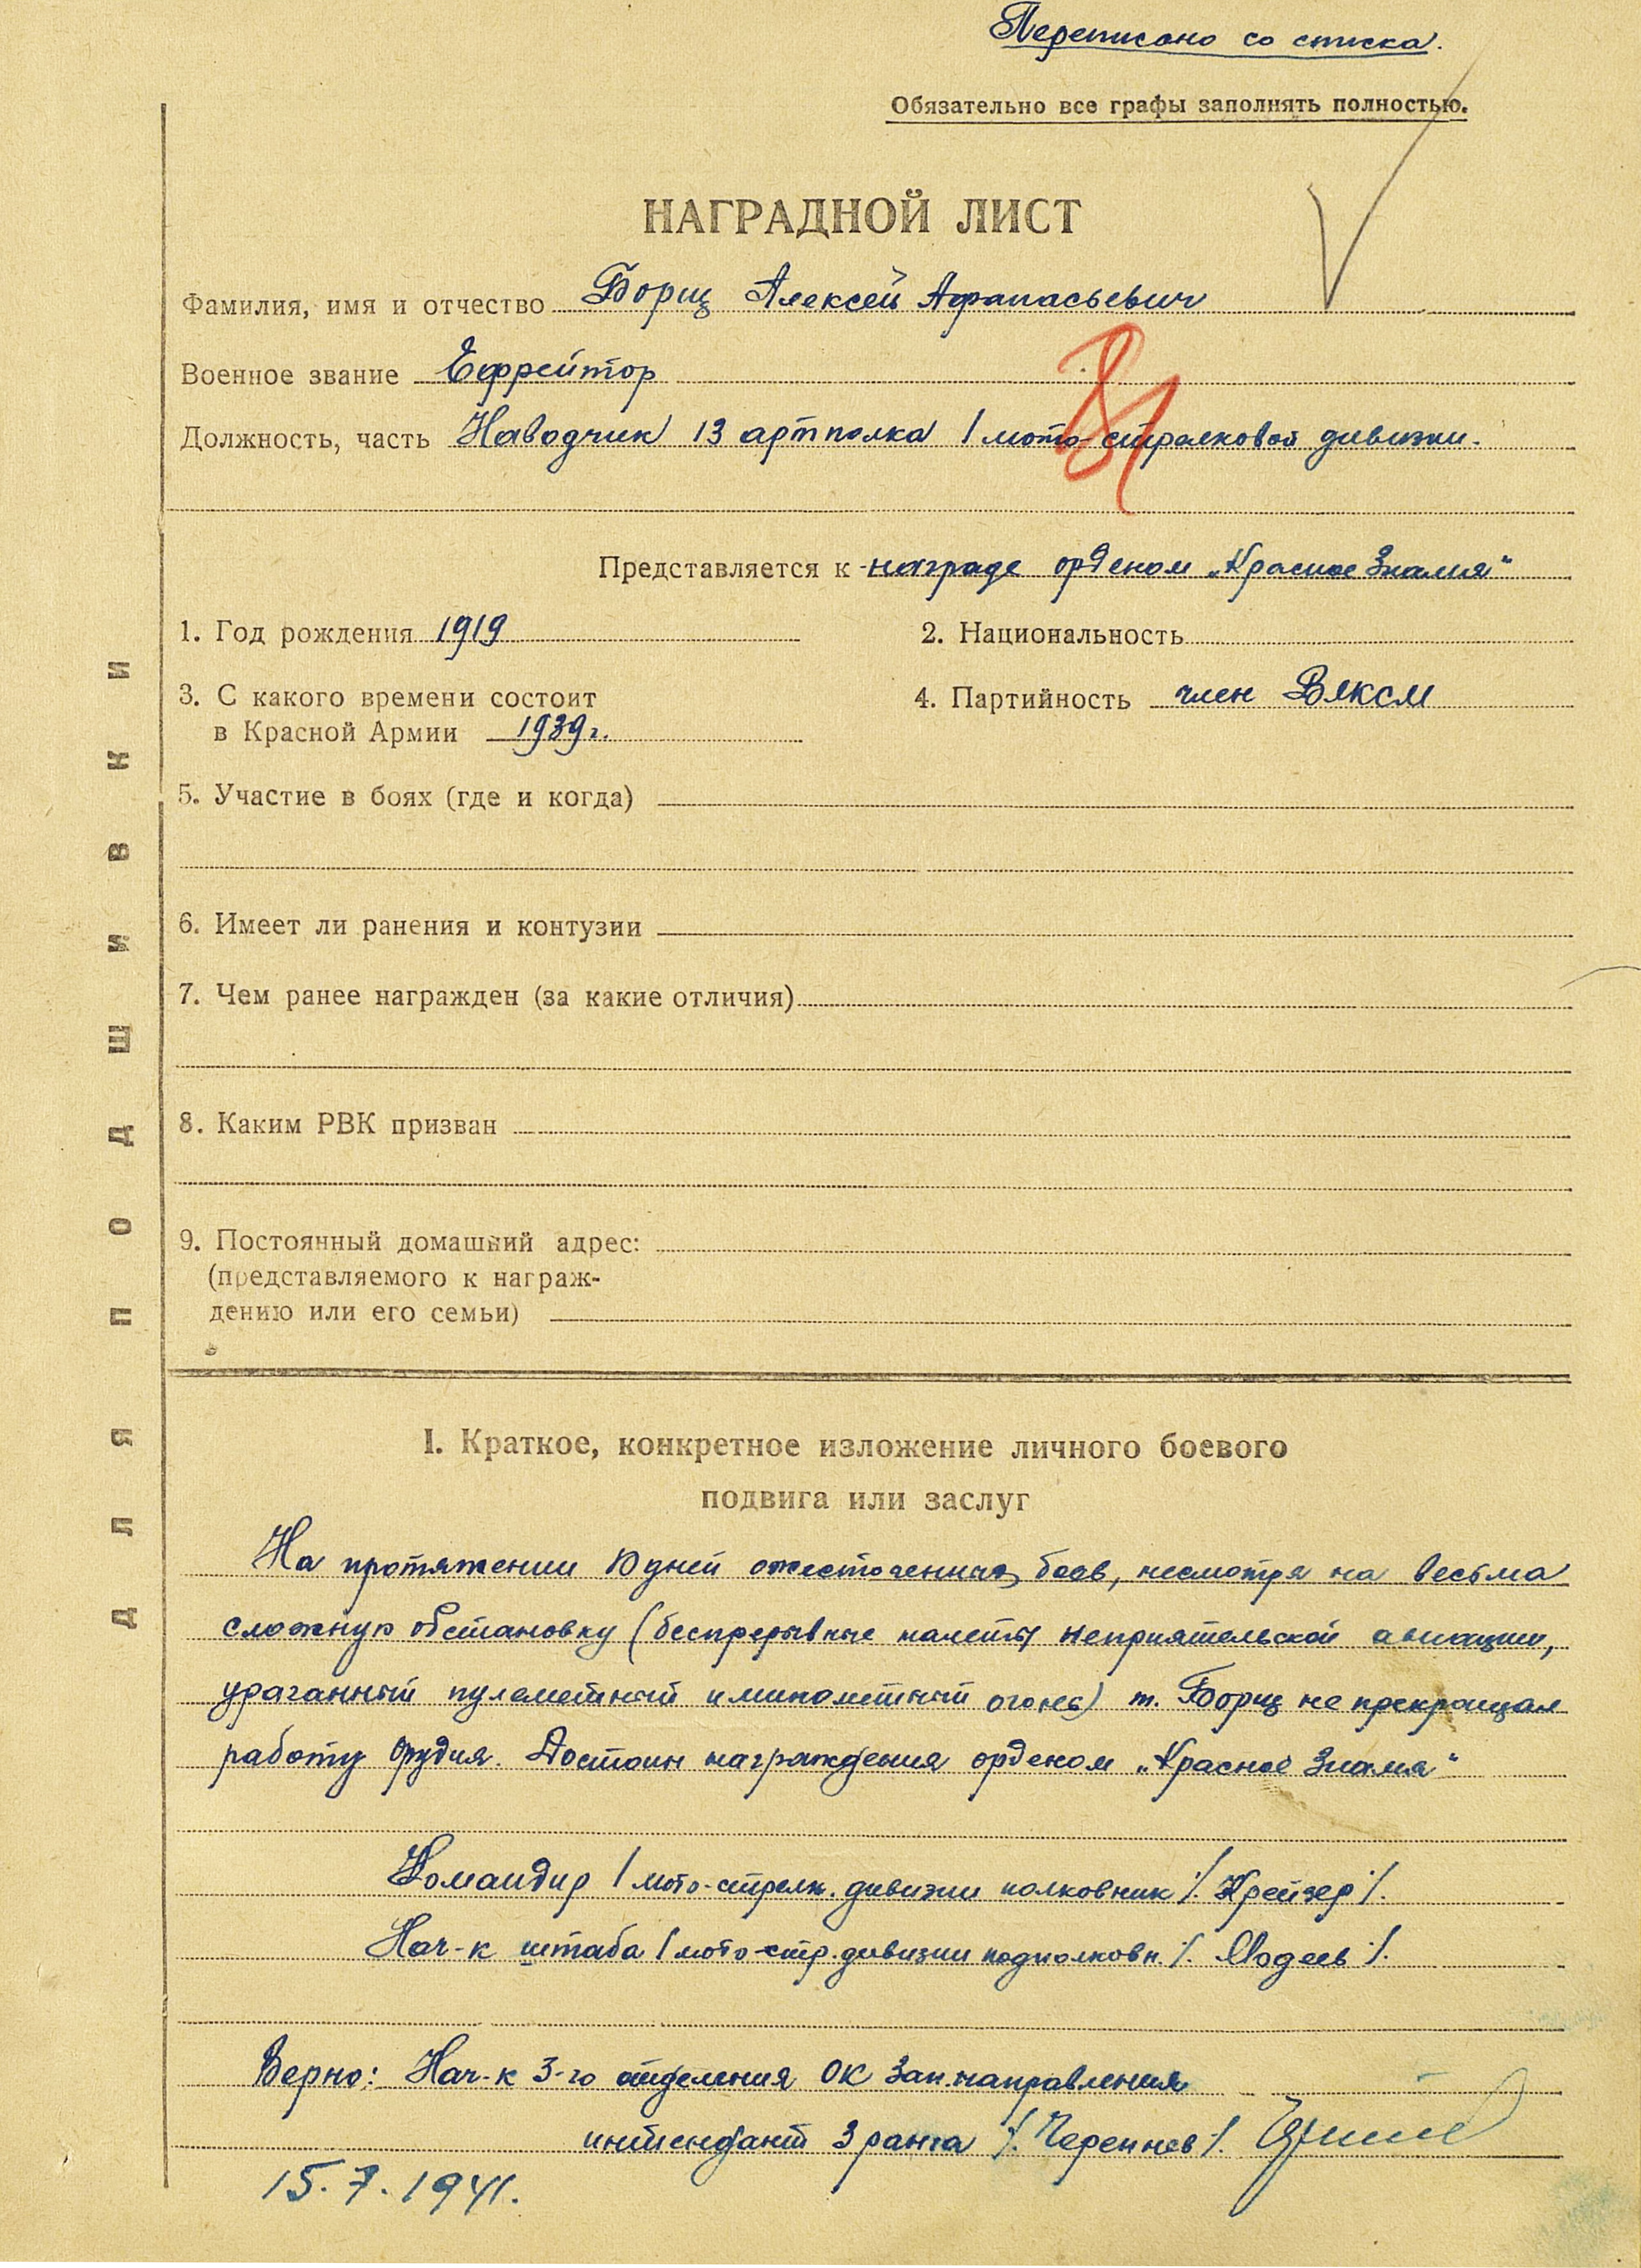 Переписано со списка.
Обязательно все графы заполнять полностью.
НАГРАДНОЙ ЛИСТ
Фамилия, имя и отчество Борщ Алексей Афанасьевич
Военное звание Ефрейтор
81
Должность, часть Наводчик 13 артполка 1 мото-стрелковой дивизии.
Представляется к награде орденом „Красное Знамя“
1. Год рождения 1919
2. Национальность
3. С какого времени состоит
в Красной Армии 1939 г.
4. Партийность член ВЛКСМ
5. Участие в боях (где и когда)
6. Имеет ли ранения и контузии
7. Чем ранее награжден (за какие отличия)
8. Каким РВК призван
9. Постоянный домашний адрес:
(представляемого к награж-
дению или его семьи)
I. Краткое, конкретное изложение личного боевого
подвига или заслуг
На протяжении 10 дней ожесточенных боев, несмотря на весьма
сложную обстановку (беспрерывные налеты неприятельской авиации,
ураганный пулеметный и минометный огонь) т. Борщ не прекращал
работу орудия. Достоин награждения орденом „Красное Знамя“
Командир 1 мото-стрелк. дивизии полковник /. Крейзер /.
Нач-к штаба 1 мото-стр. дивизии подполковн. /. Модеев /.
Верно: Нач-к 3-го отделения ОК Зап. направления
интендант 3 ранга /. /.
15.7.1941.
ДЛЯ ПОДШИВКИ